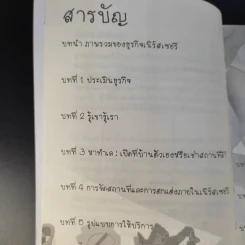 สารบัญ
บทนำ ภาพรวมของธุรกิจเนิร์สเซอรี่
บทที่ 1 ประเมินธุรกิจ
บทที่ 2 รู้เขารู้เรา
บทที่ 3 หาทำเล : เปิดที่บ้านตัวเองหรือเช่าสถานที่ดี
บทที่ 4 การจัดสถานที่และการตกแต่งภายในเนิร์สเซอรี่
บทที่ 5 รูปแบบการให้บริการ